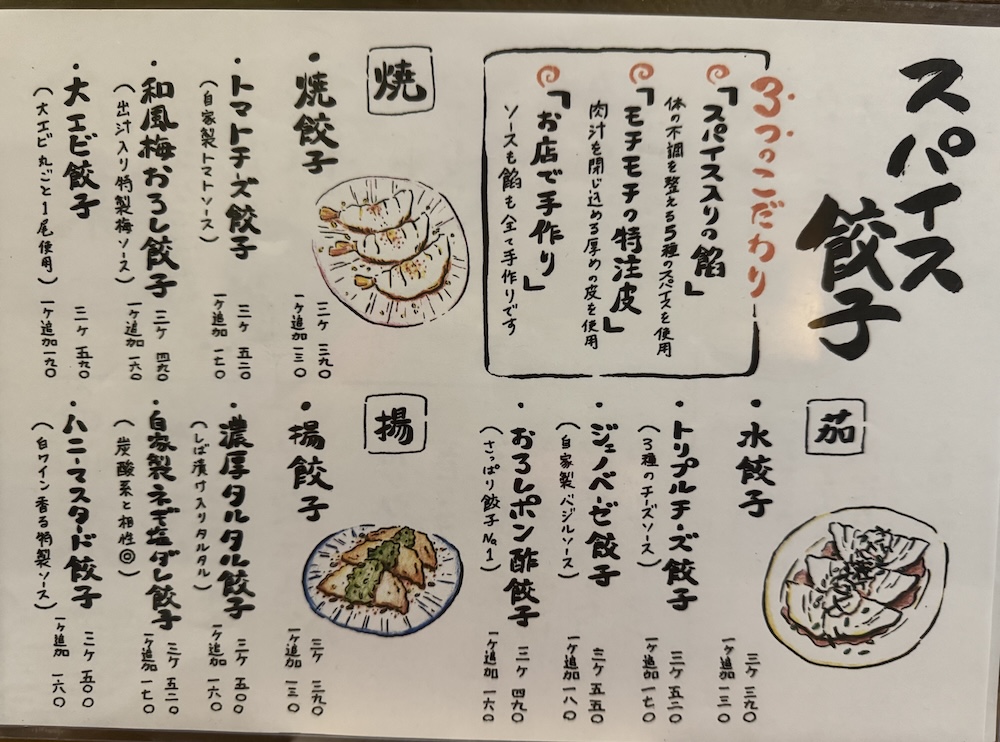 スパイス
餃子
3つのこだわり
「スパイス入りの餡」
体の不調を整える5種のスパイスを使用
「モチモチの特注皮」
肉汁を閉じ込める厚めの皮を使用
「お店で手作り」
ソースも餡も全て手作りです
焼
・焼餃子
三ケ 三九〇
一ヶ追加 一三〇
・トマトチーズ餃子
(自家製トマトソース)
三ケ 五二〇
一ヶ追加 一七〇
・和風梅おろし餃子
(出汁入り特製梅ソース)
三ケ 四九〇
一ヶ追加 一六〇
・大エビ餃子
(大エビ丸ごと1尾使用)
三ケ 五九〇
一ヶ追加 一九〇
茹
・水餃子
三ケ 三九〇
一ヶ追加 一三〇
・トリプルチーズ餃子
(3種のチーズソース)
三ケ 五二〇
一ヶ追加 一七〇
・ジェノベーゼ餃子
(自家製バジルソース)
三ケ 五五〇
一ヶ追加 一八〇
・おろしポン酢餃子
(さっぱり餃子No.1)
三ケ 四九〇
一ヶ追加 一六〇
揚
・揚餃子
三ケ 三九〇
一ヶ追加 一三〇
・濃厚タルタル餃子
(しば漬け入りタルタル)
三ケ 五〇〇
一ヶ追加 一六〇
・自家製ネギ塩ダレ餃子
(炭酸系と相性◎)
三ケ 五二〇
一ヶ追加 一七〇
・ハニーマスタード餃子
(白ワイン香る特製ソース)
三ケ 五〇〇
一ヶ追加 一六〇